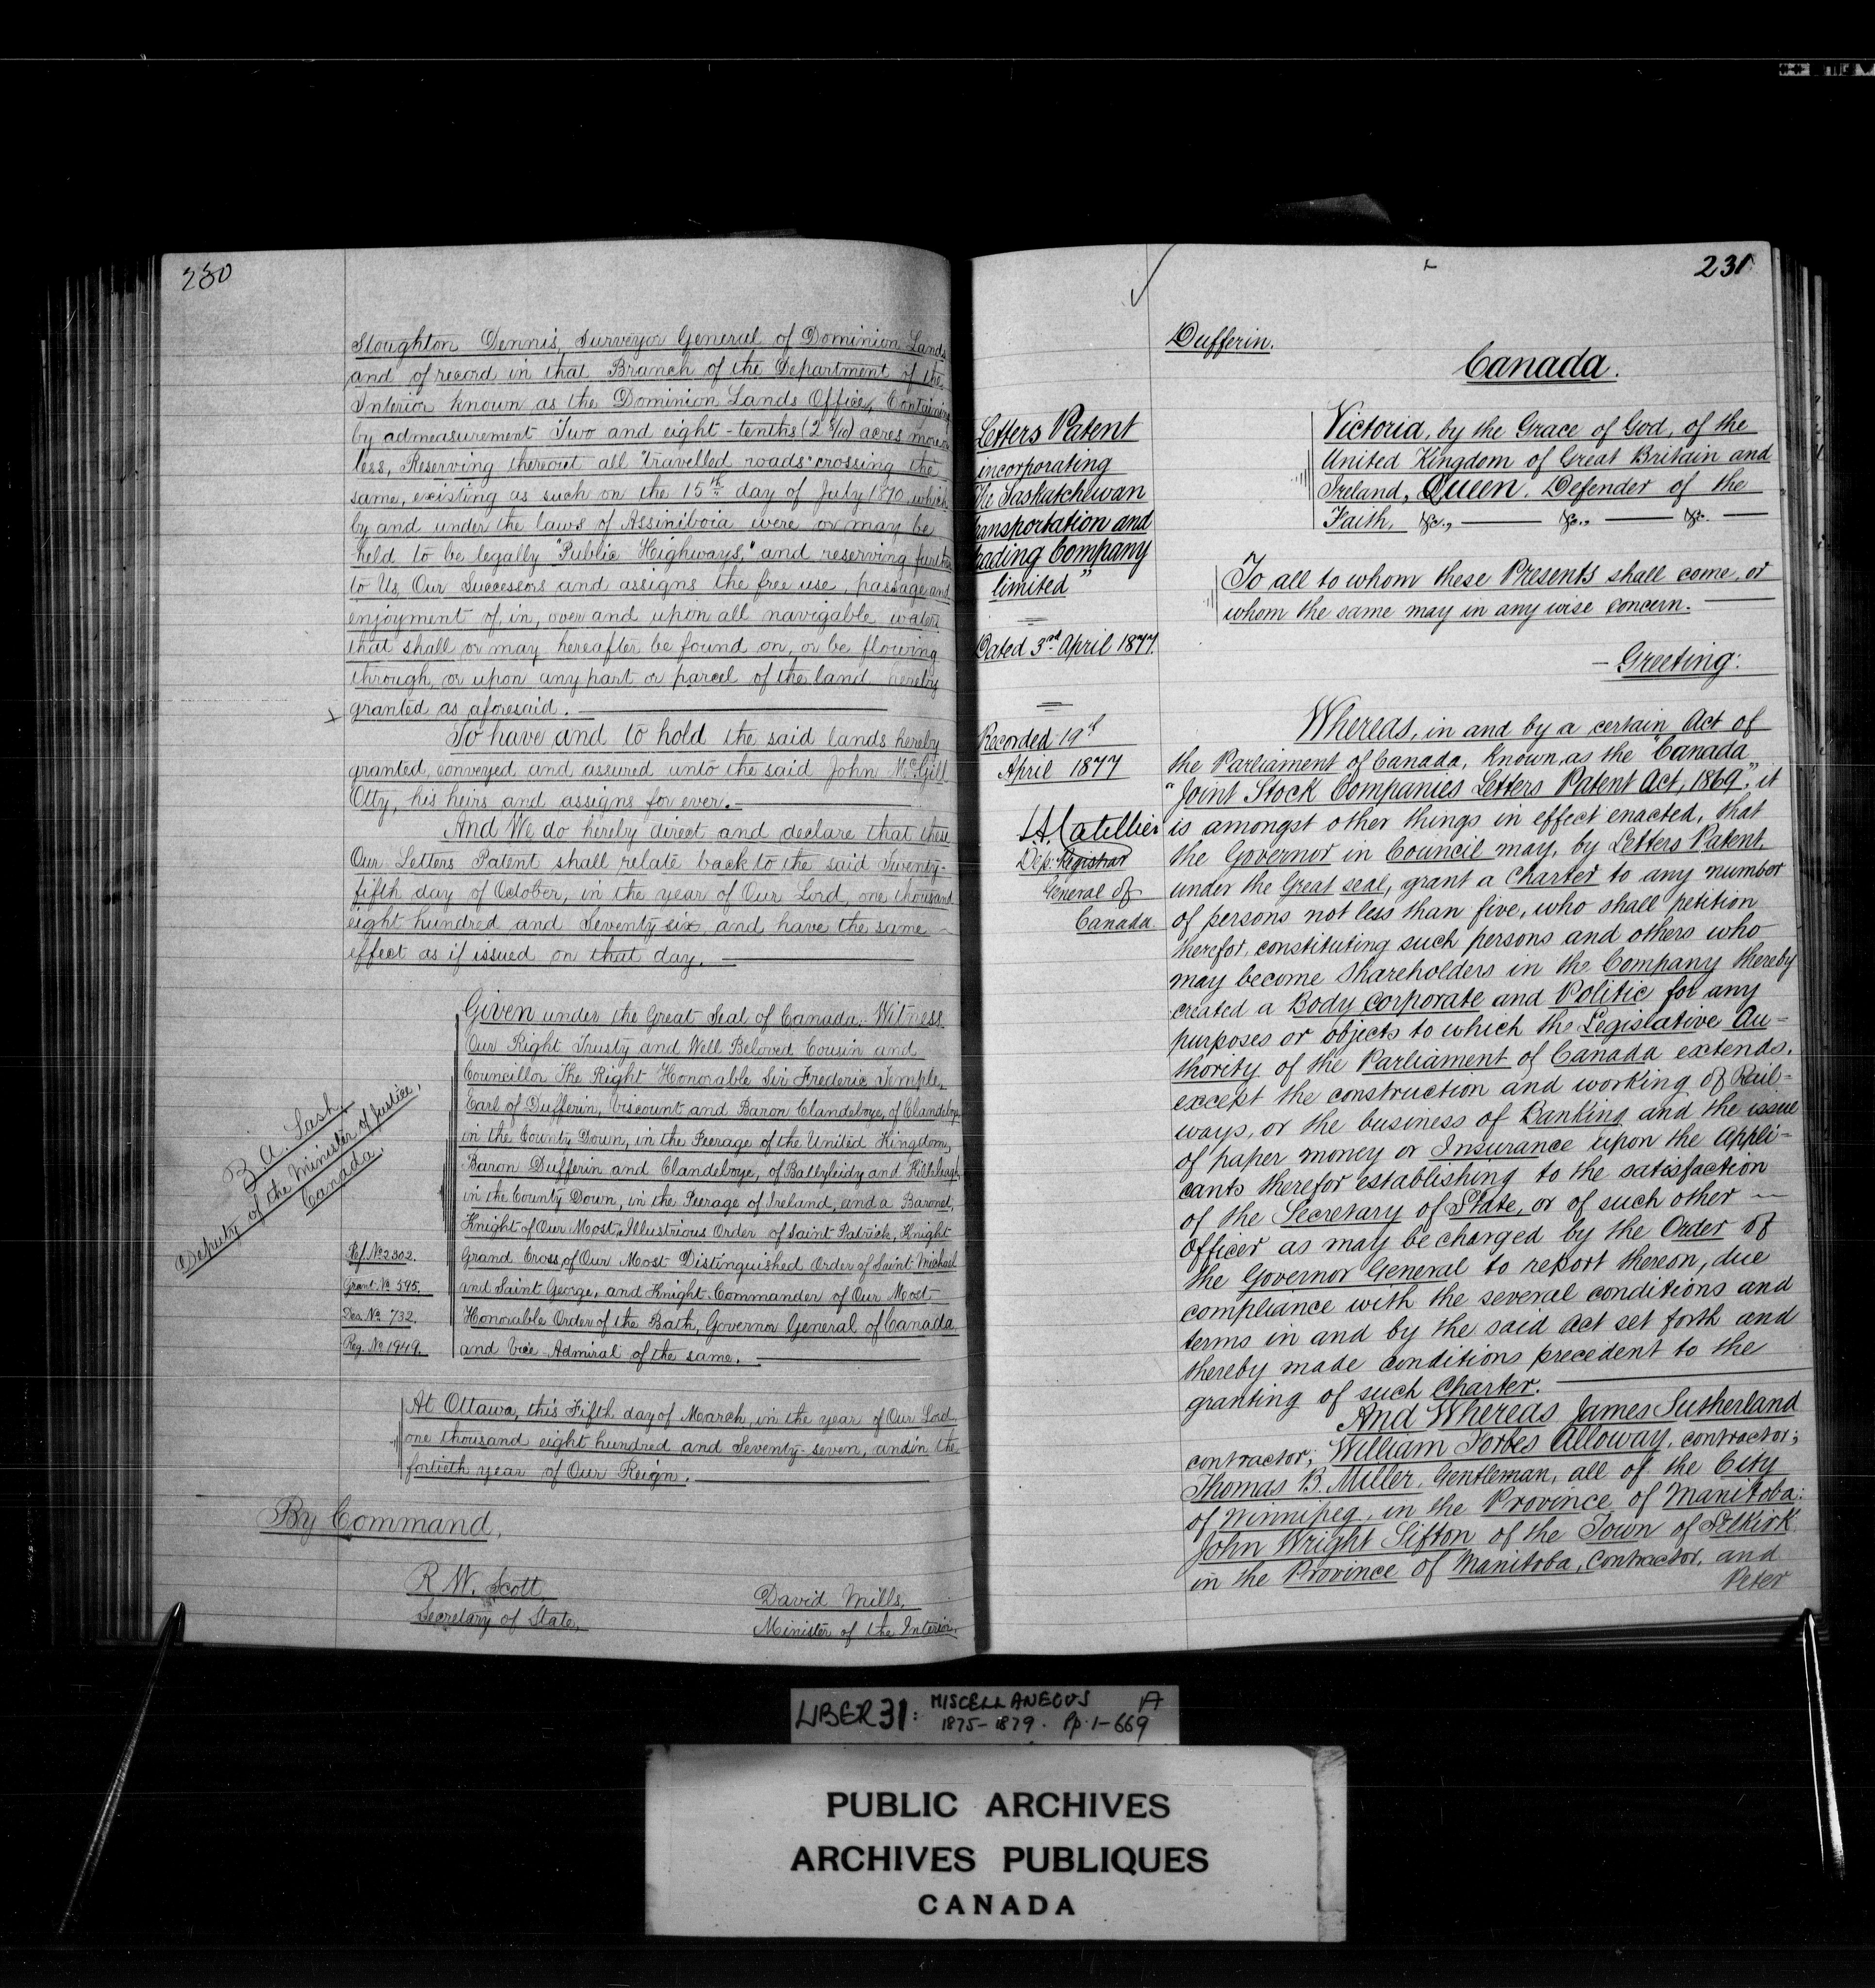 230
Stoughton Dennis, Surveyor General of Dominion Lands
and of record in that Branch of the Department of the
Interior known as the Dominion Lands Office, Containing
by admeasurement Two and eight-tenths (2 8/10) acres more or
less, Reserving thereout all "travelled roads" crossing the
same, existing as such on the 15th day of July 1870 which
by and under the laws of Assiniboia were or may be
held to be legally "Public Highways," and reserving further
to Us, Our Successors and assigns the free use, passage and
enjoyment of, in, over and upon all navigable waters
that shall or may hereafter be found on, or be flowing
through, or upon any part or parcel of the land hereby
granted as aforesaid.
To have and to hold the said lands hereby
granted, conveyed and assured unto the said John McGill
Otty, his heirs and assigns for ever.
And We do hereby direct and declare that these
Our Letters Patent shall relate back to the said Twenty-
fifth day of October, in the year of Our Lord, one thousand
eight hundred and Seventy six and have the same
effect as if issued on that day.
Given under the Great Seal of Canada: Witness
Our Right Trusty and Well Beloved Cousin and
Councillor The Right Honorable Sir Frederic Temple,
Earl of Dufferin, Viscount and Baron Clandeboye, of Clandeboye
in the County Down, in the Peerage of the United Kingdom,
Baron Dufferin and Clandeboye, of Ballyleidy and Killeleagh
in the County Down, in the Peerage of Ireland, and a Baronet,
Knight of Our Most Illustrious Order of Saint Patrick, Knight
Grand Cross of Our Most Distinguished Order of Saint Michael
and Saint George, and Knight Commander of Our Most
Honorable Order of the Bath, Governor General of Canada
and Vice Admiral of the same.
Z. A. Lash,
Deputy of the Minister of Justice,
Canada.
Rf. No 2302.
Grant No 595.
Des. No 732.
Reg. No 1949.
At Ottawa, this Fifth day of March, in the year of Our Lord,
one thousand eight hundred and Seventy-seven, and in the
fortieth year of Our Reign.
By Command,
R. W. Scott
Secretary of State,
David Mills,
Minister of the Interior.
231
Dufferin.
Canada.
Letters Patent
incorporating
The Saskatchewan
ransportation and
ading Company
limited"
Dated 3rd April 1877.
Recorded 19th
April 1877
Dep. Registrar
General of
Canada.
Victoria, by the Grace of God, of the
United Kingdom of Great Britain and
Ireland, Queen. Defender of the
Faith, &c., &c., &c.
To all to whom these Presents shall come, or
whom the same may in any wise concern.
Greeting:
Whereas, in and by a certain Act of
the Parliament of Canada, known as the "Canada
"Joint Stock Companies Letters Patent Act, 1869," it
is amongst other things in effect enacted, that
the Governor in Council may, by Letters Patent,
under the Great seal, grant a Charter to any number
of persons not less than five, who shall petition
therefor, constituting such persons and others who
may become Shareholders in the Company thereby
created a Body Corporate and Politic for any
purposes or objects to which the Legislative Au=
thority of the Parliament of Canada extends,
except the construction and working of Rail=
ways, or the business of Banking and the issue
of paper money or Insurance upon the Appli=
cants therefor establishing to the satisfaction
of the Secretary of State, or of such other
Officer as may be charged by the Order of
the Governor General to report thereon, due
compliance with the several conditions and
terms in and by the said Act set forth and
thereby made conditions precedent to the
granting of such Charter.
And Whereas James Sutherland
contractor; William Forbes Alloway, contractor;
Thomas B. Miller, Gentleman, all of the City
of Winnipeg, in the Province of Manitoba:
John Wright Sifton of the Town of Selkirk
in the Province of Manitoba, Contractor, and
Peter
LIBER 31: MISCELLANEOUS A
1875-1879. Pp. 1-669
PUBLIC ARCHIVES
ARCHIVES PUBLIQUES
CANADA